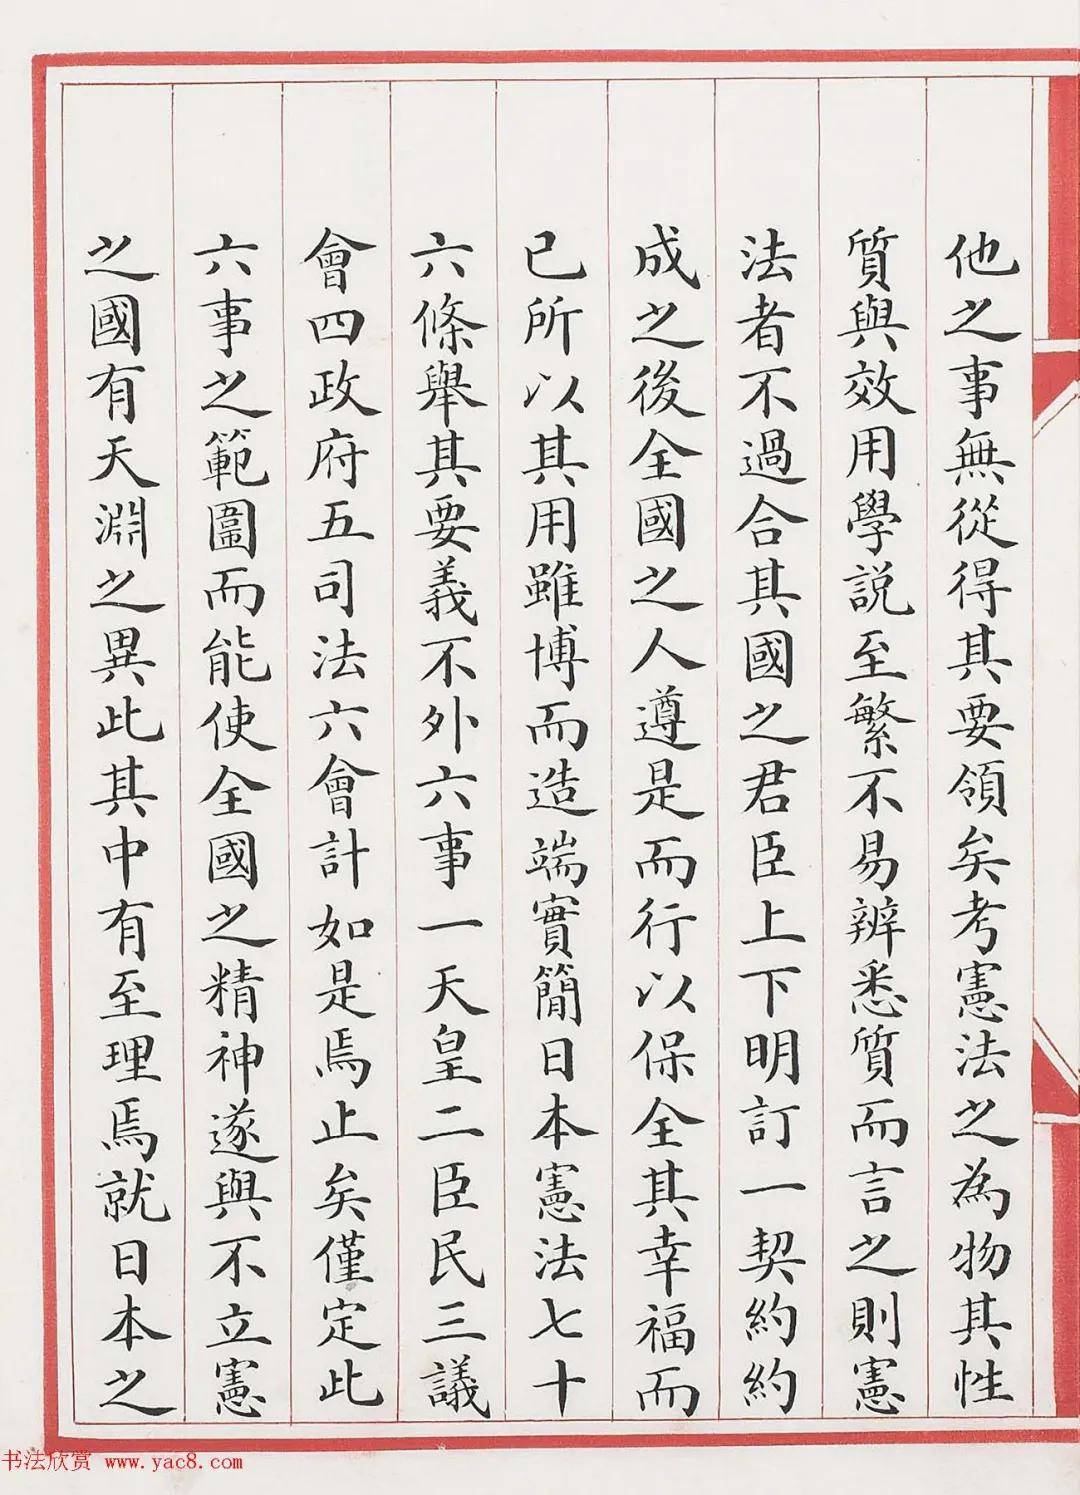 他之事無從得其要領矣考憲法之為物其性
質與效用學說至繁不易辨悉質而言之則憲
法者不過合其國之君臣上下明訂一契約約
成之後全國之人遵是而行以保全其幸福而
已所以其用雖博而造端實簡日本憲法七十
六條舉其要義不外六事一天皇二臣民三議
會四政府五司法六會計如是焉止矣僅定此
六事之範圍而能使全國之精神遂與不立憲
之國有天淵之異此其中有至理焉就日本之
书法欣赏 www.yac8.com